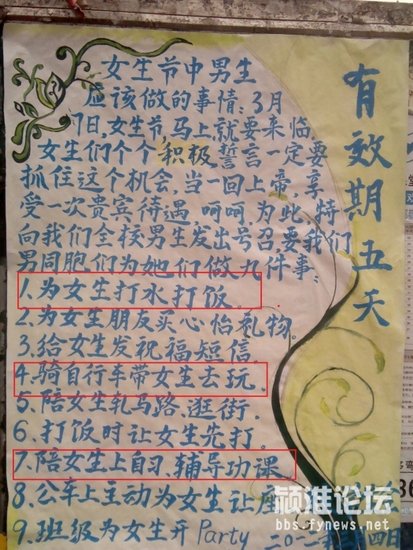 女生节中男生
应该做的事情：3月
7日，女生节，马上就要来临，
女生们个个积极誓言一定要
抓住这个机会，当一回上帝，享
受一次贵宾待遇，呵呵，为此，特
向我们全校男生发出号召要我们
男同胞们为她们做九件事：
1.为女生打水打饭。
2.为女生朋友买心怡礼物。
3.给女生发祝福短信。
4.骑自行车带女生去玩。
5.陪女生轧马路，逛街。
6.打饭时让女生先打。
7.陪女生上自习，辅导功课。
8.公车上主动为女生让
9.班级为女生开Party
有效期五天
颍淮论坛
bbs.fynews.net